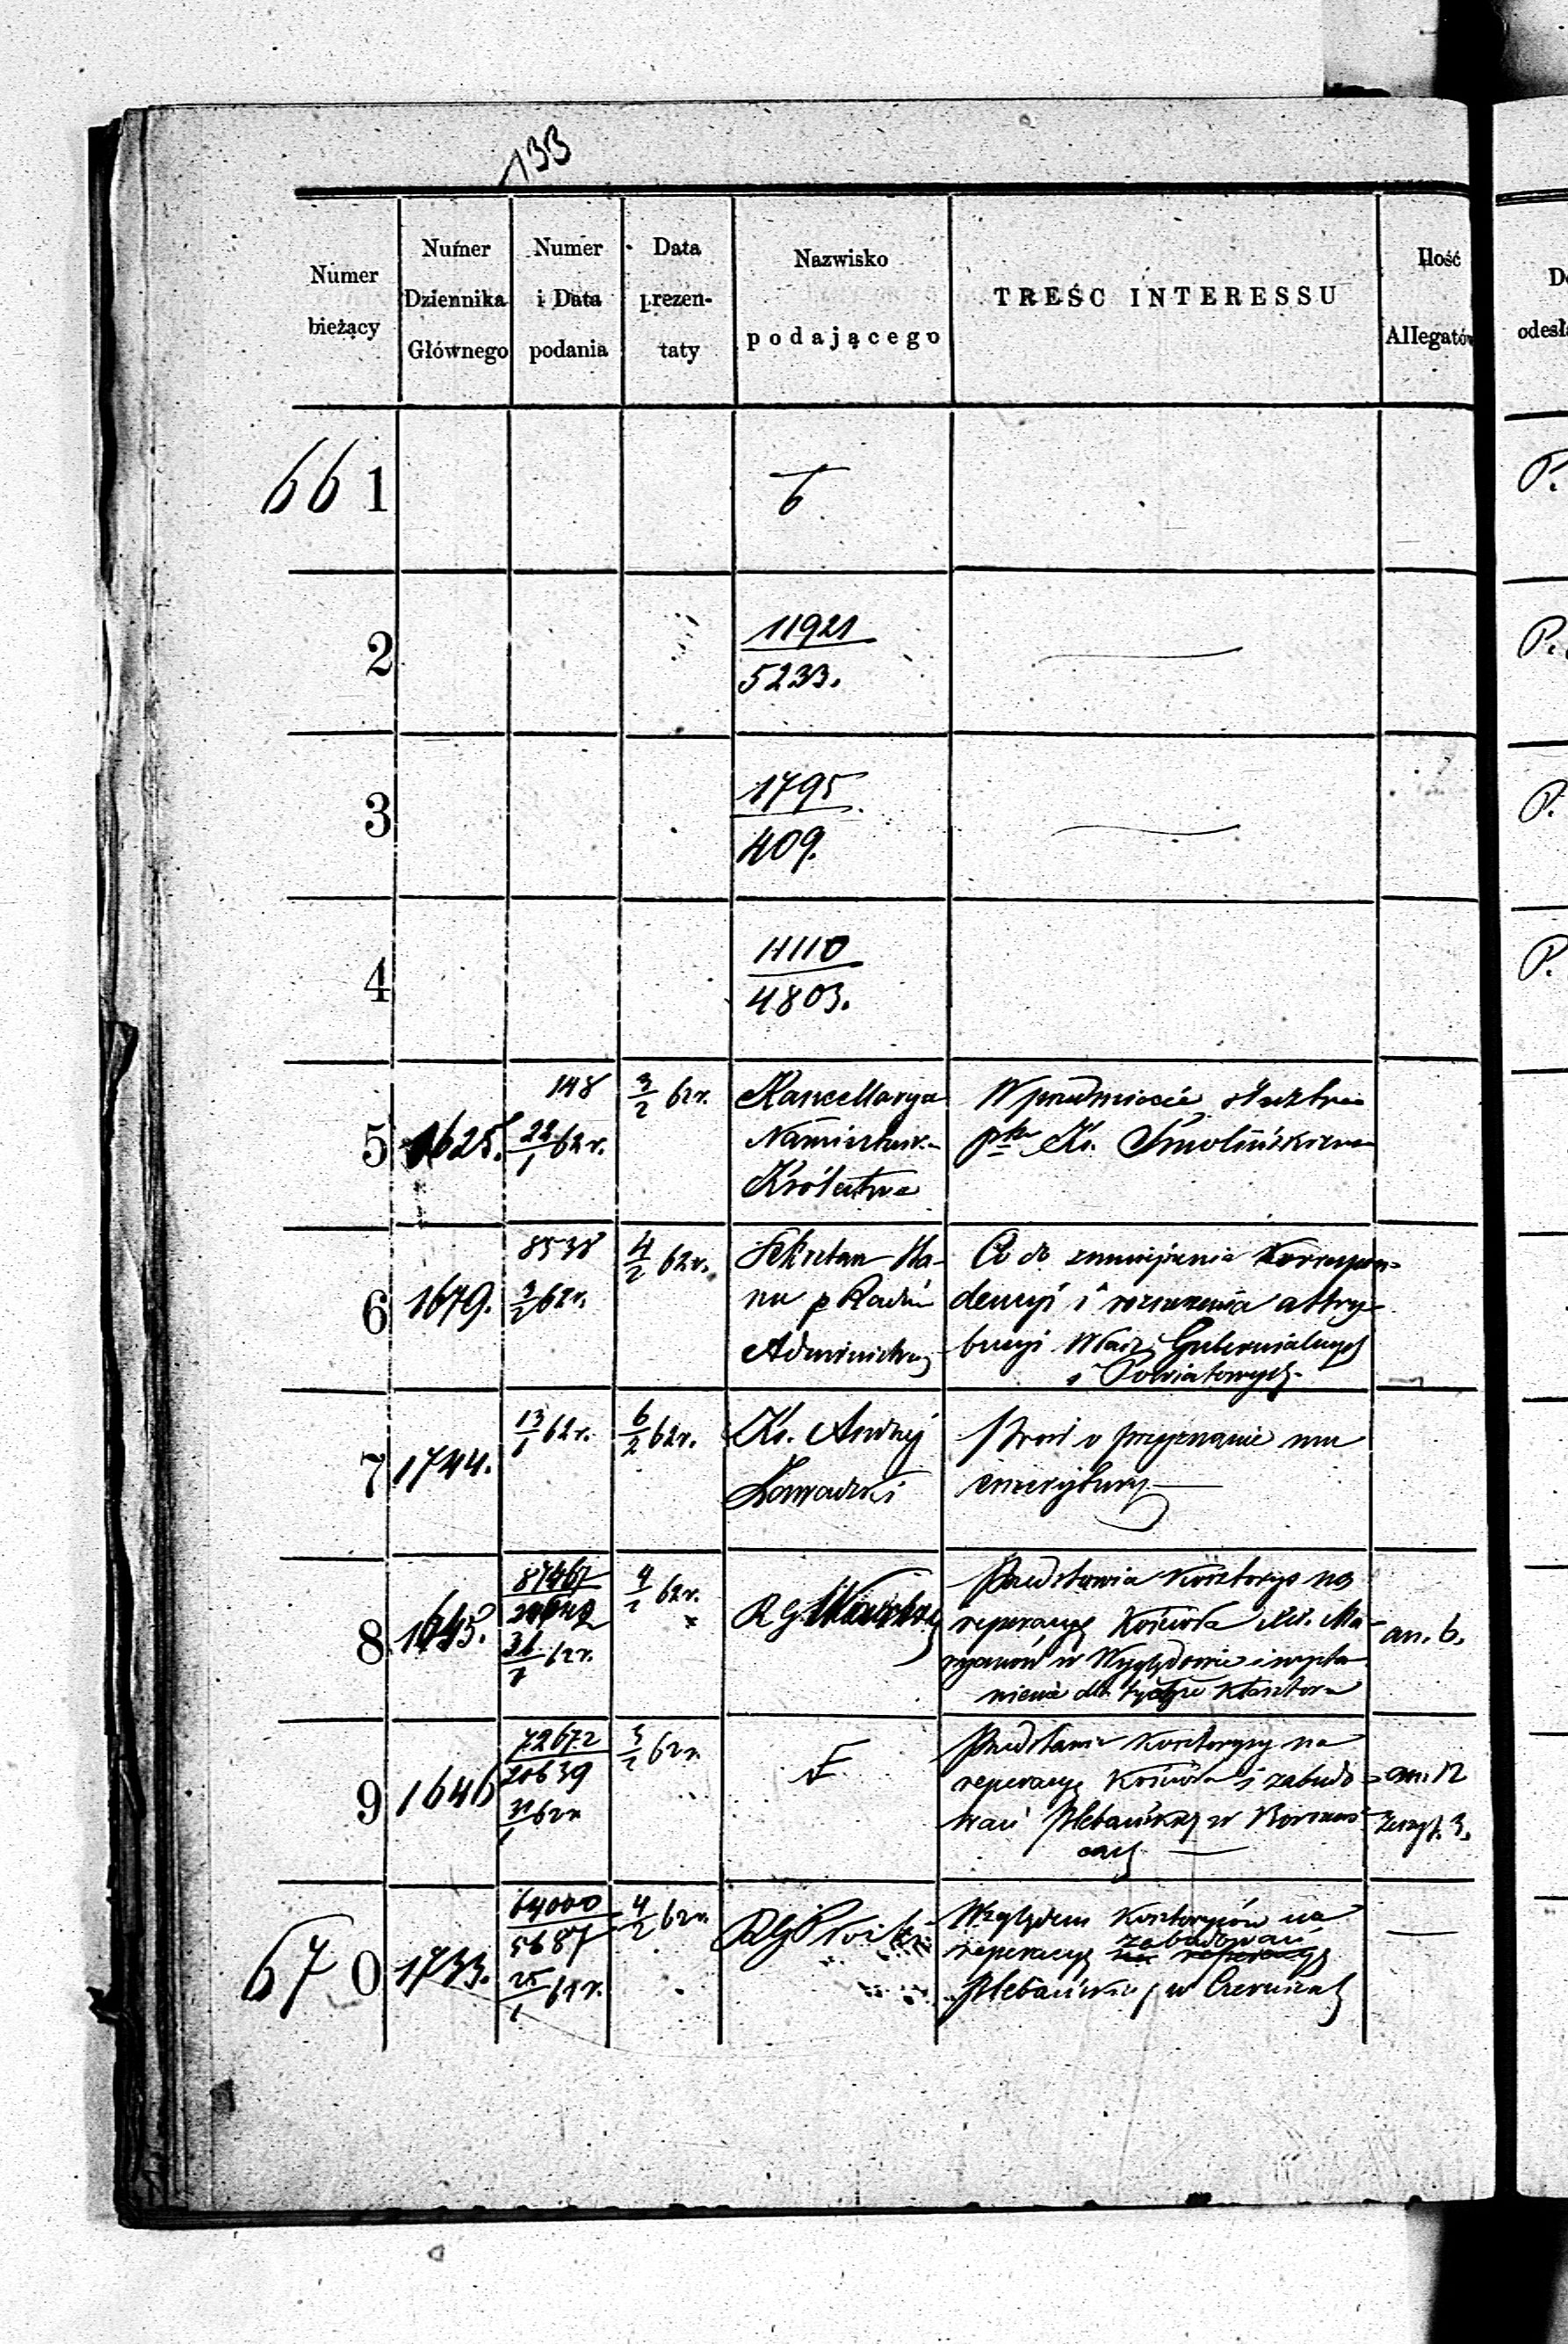 133
Numer bieżący
Numer Dziennika Głównego
Numer i Data podania
Data prezen-taty
Nazwisko podającego
TREŚC INTERESSU
Ilość Allegatów
661
6
2
11921
5233.
3
1795
409.
4
11110
4803.
5
1625.
148
22/1 62 r.
3/2 62 r.
Kancellarya
Namiestn.
Królestwa
W przedmiocie służbie
Ks. Smolińskiemu
6
1679.
8538
3/2 62 r.
4/2 62 r.
Sekretarz Sta-
nu p Radzie
Administracyj
Co do zmniejszenia korrespon-
dencyi i rozszerzenia attry-
bucyi Władz Gubernialnych
i Powiatowych
7
1744.
13/1 62 r.
6/2 62 r.
Ks. Andrzej
Zawadzki
Prosi o przyznanie mu
emerytury
8
1645.
87467
31/1 62 r.
4/2 62 r.
R G Warszaws
Przedstawia kosztorys na
reperacyę Kościoła XX. Ma-
ryanów w
dla tychże Klasztoru
an. 6.
9
1646
72672
20639
31/1 62 r
3/2 62 r.
Przedstawia kosztorysy na
reperacyę Kościoła i zabudo-
wań Plebańskich w
cach
an. 12
zeszyt. 3.
670
1733.
64000
5687
25/1 62 r.
4/2 62 r.
RG Płocki
Względem kosztorysów na
reperacyę zabudowań
na reperacyę
Plebańskich w Czerwinsk
P.
P.
P.
P.